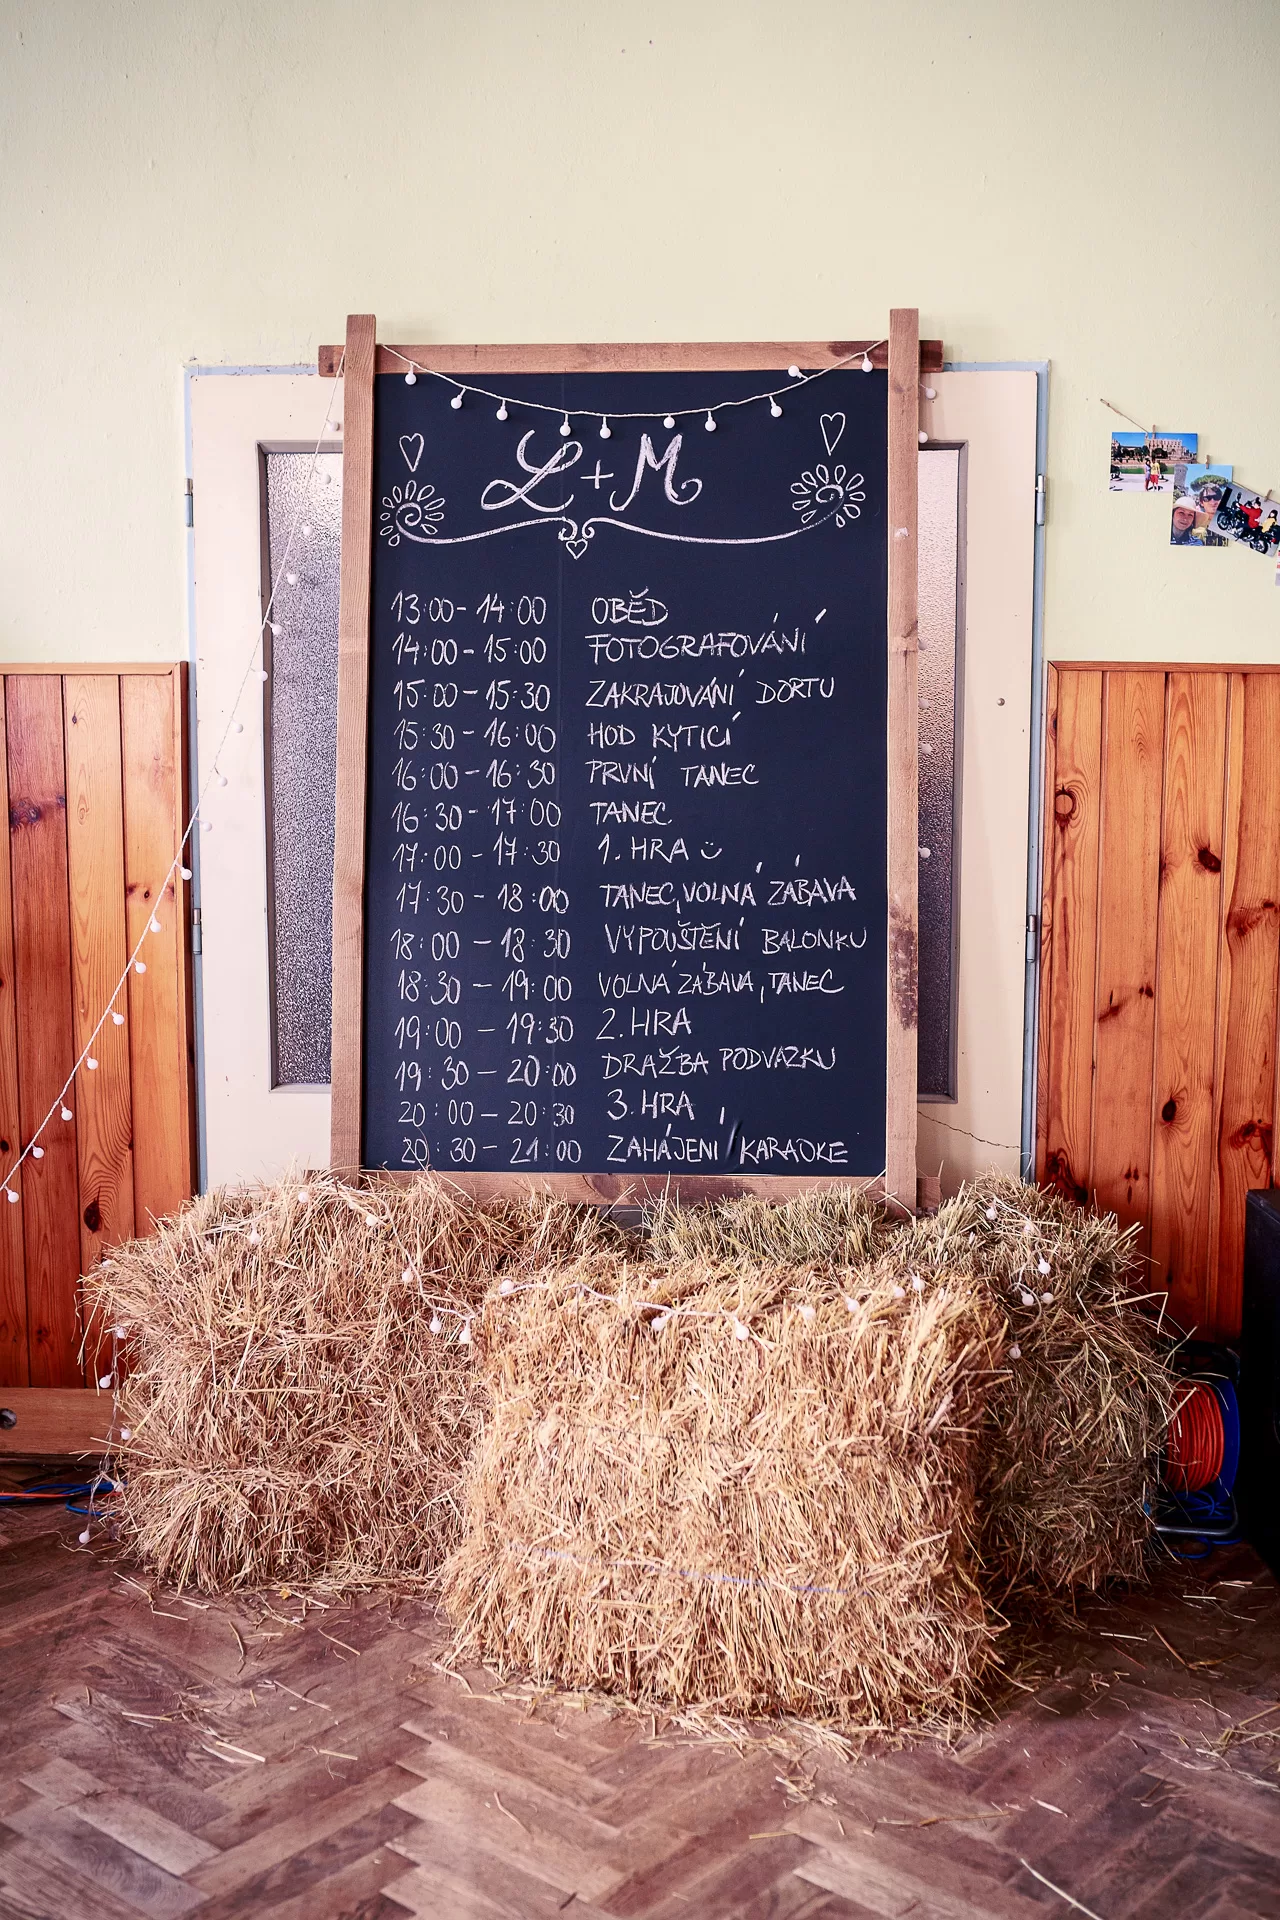 L+M
13:00 - 14:00 OBĚD
14:00 - 15:00 FOTOGRAFOVÁNÍ
15:00 - 15:30 ZAKRAJOVÁNÍ DORTU
15:30 - 16:00 HOD KYTICÍ
16:00 - 16:30 PRVNÍ TANEC
16:30 - 17:00 TANEC
17:00 - 17:30 1. HRA
17:30 - 18:00 TANEC, VOLNÁ ZÁBAVA
18:00 - 18:30 VYPOUŠTĚNÍ BALONKU
18:30 - 19:00 VOLNÁ ZÁBAVA, TANEC
19:00 - 19:30 2. HRA
19:30 - 20:00 DRAŽBA PODVAZKU
20:00 - 20:30 3. HRA
20:30 - 21:00 ZAHÁJENÍ KARAOKE